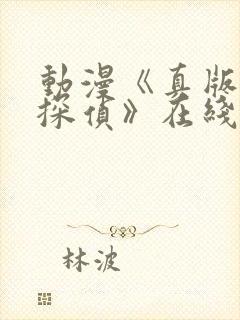 動漫《真版
探偵》在綫
林波